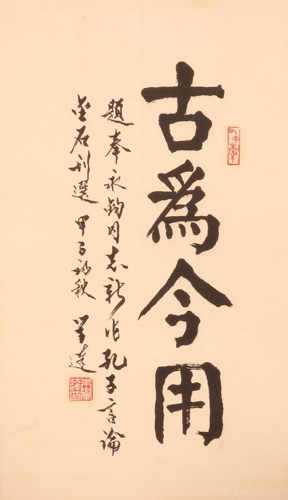 古為今用
題奉永鈞同志新作孔子言論
金石刊選 甲子初秋